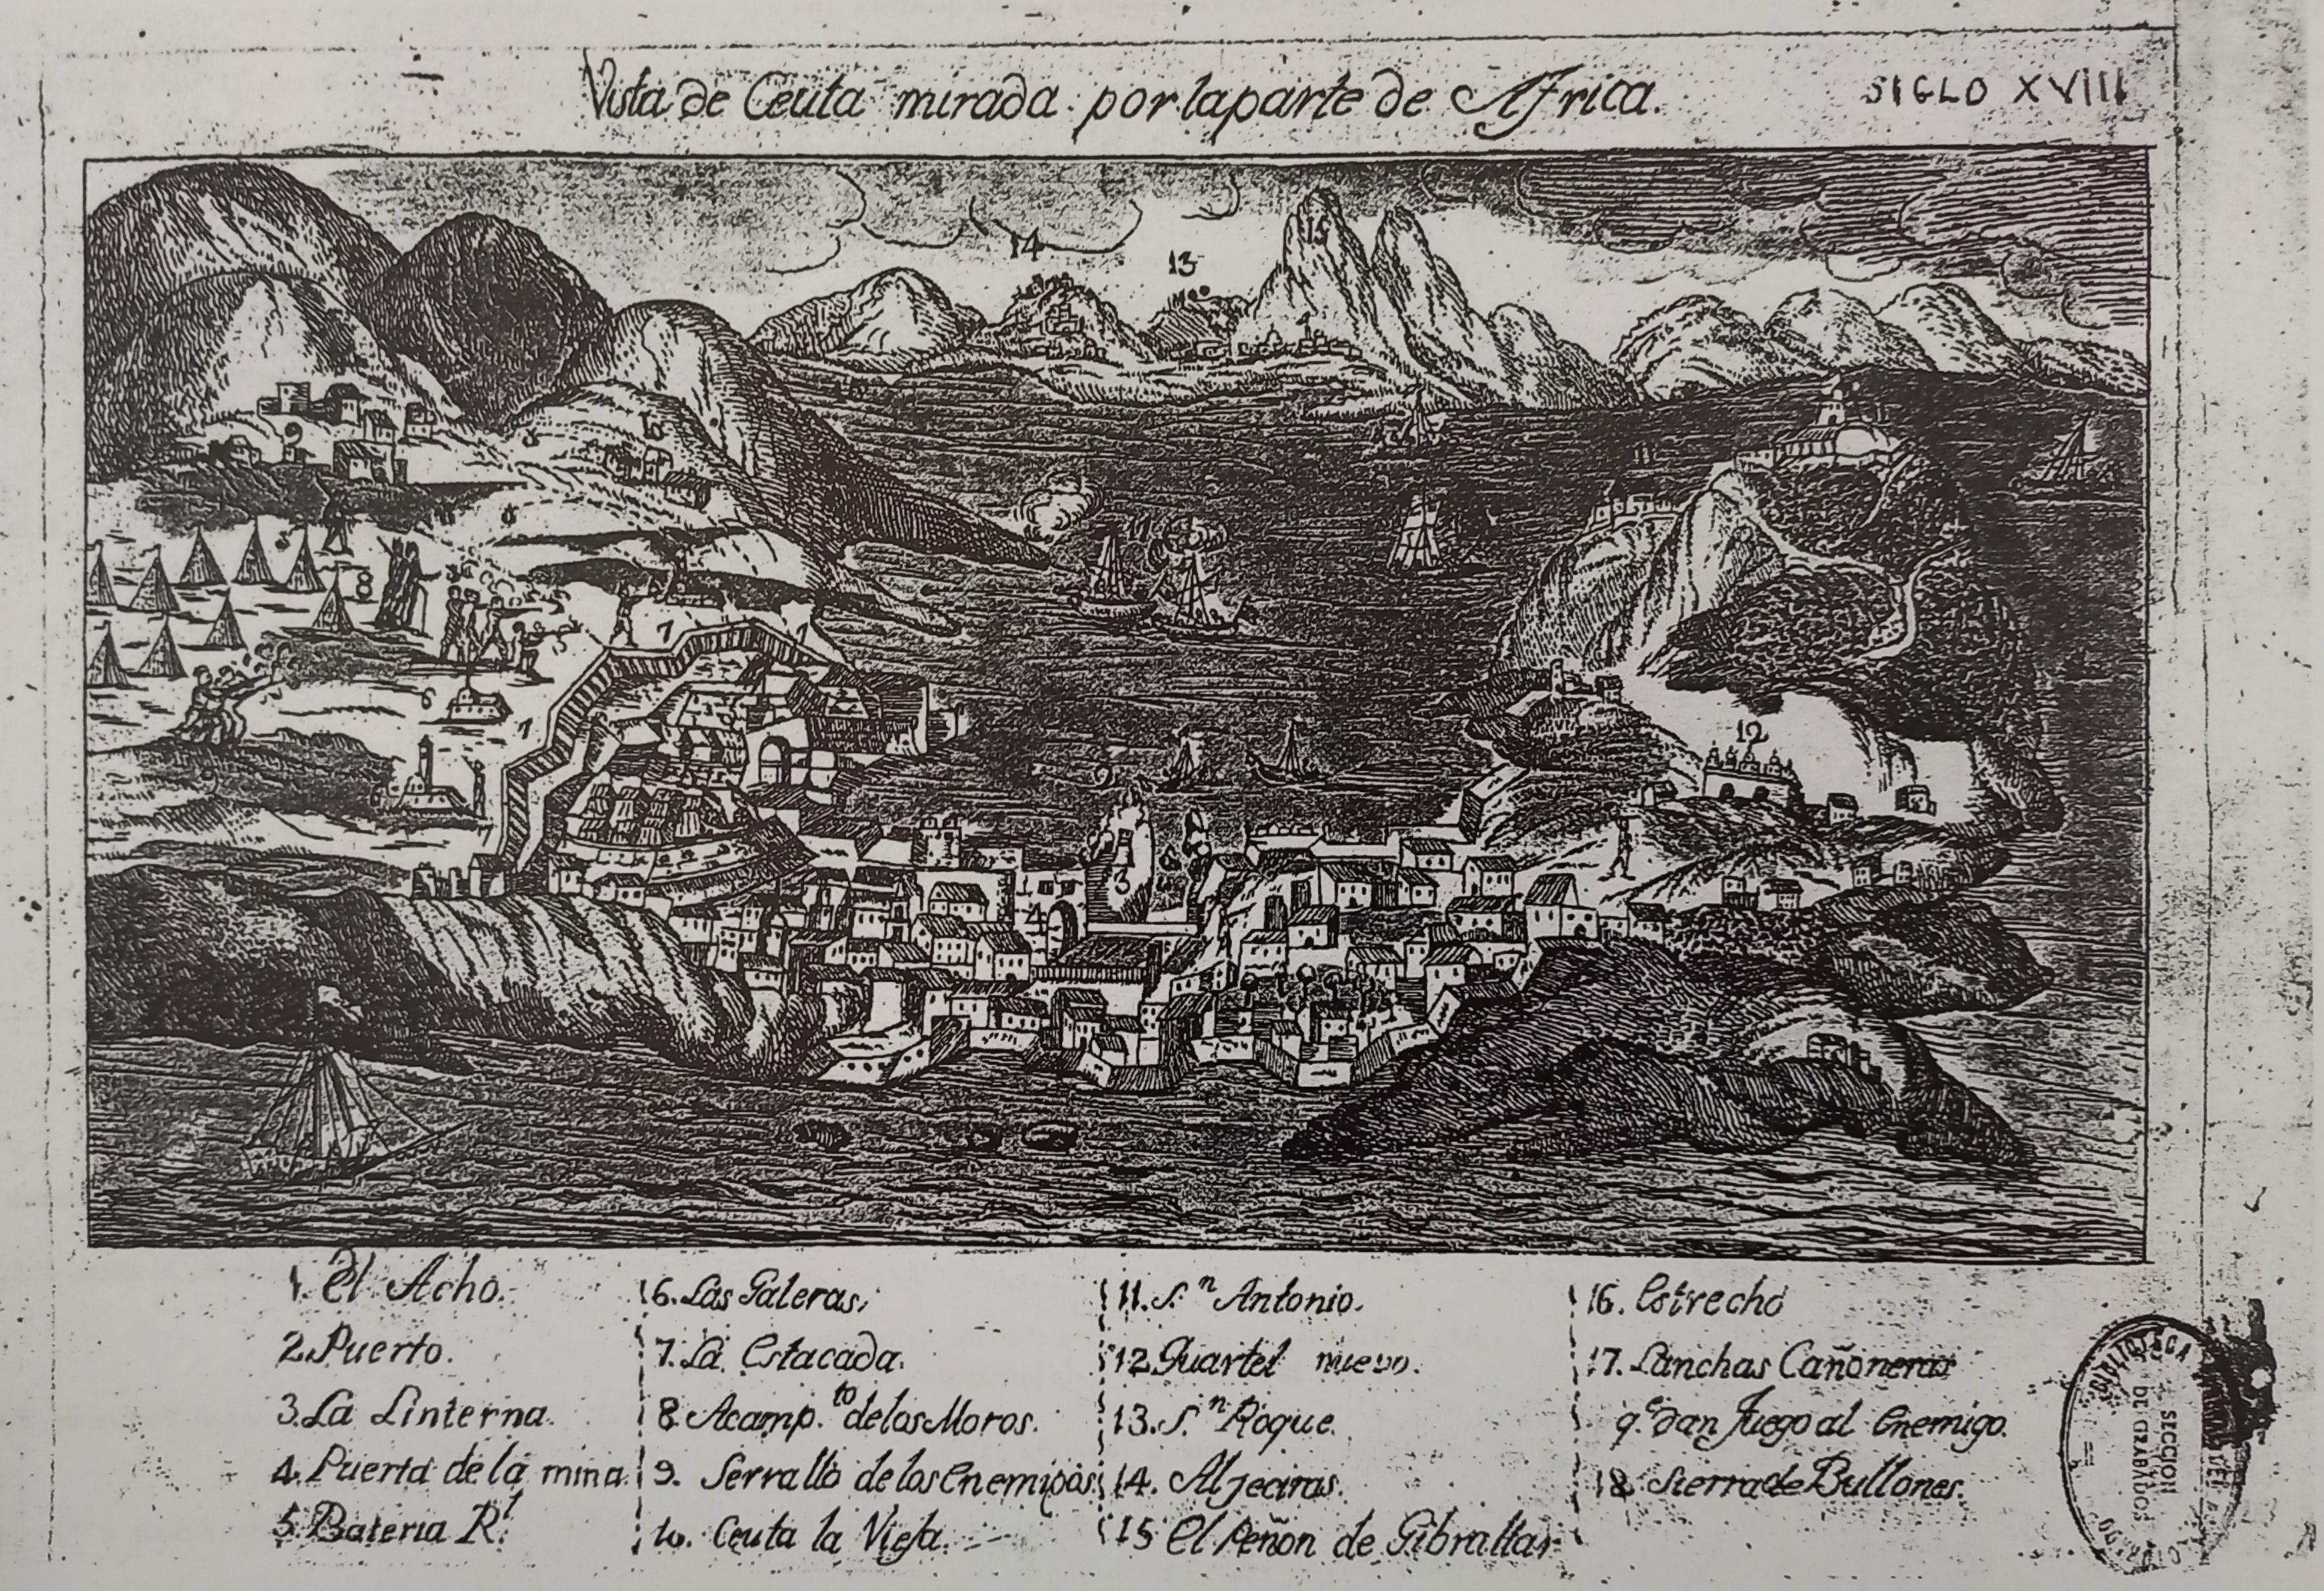 Vista de Ceuta mirada por la parte de Africa.
SIGLO XVIII
14
13
15
9
10
11
17
8
7
7
6
7
12
3
4
1. El Acho.
2. Puerto.
3. La Linterna.
4. Puerta de la mina.
5. Bateria R.l
6. Las Galeras.
7. La Estacada.
8. Acamp.to de los Moros.
9. Serrallo de los Enemigos.
10. Ceuta la Vieja.
11. S.n Antonio.
12. Quartel nuevo.
13. S.n Roque.
14. Aljeciras.
15 El Peñon de Gibraltar
16. Estrecho
17. Lanchas Cañoneras
q.e dan fuego al Enemigo.
18. Sierra de Bullones.
BIBLIOTECA
SECCION
DE GRABADOS